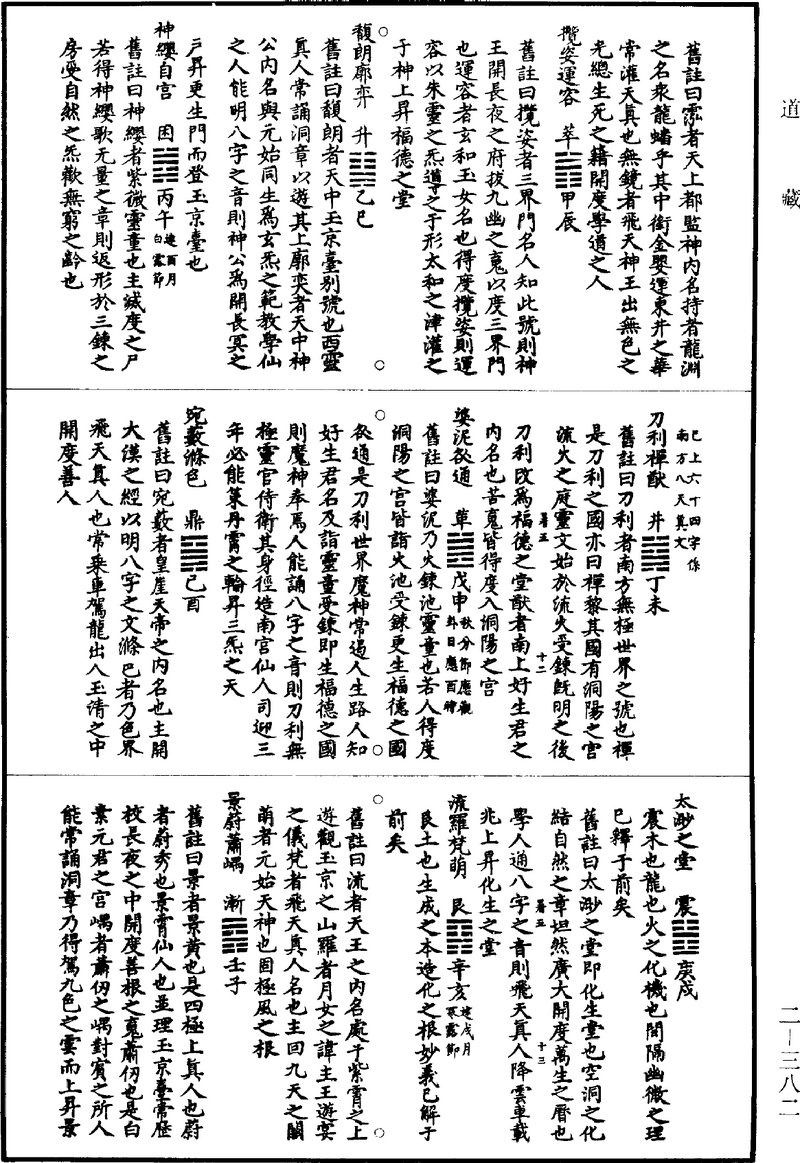 道藏
舊註曰霐者天上都監神內名持者龍淵
之名衆龍蟠乎其中銜金嬰運東井之華
常灌天真也無鏡者飛天神王出無色之
光總生死之籍開度學道之人
攬姿運容　萃䷬甲辰
舊註曰攬姿者三界門名人知此號則神
王開長夜之府拔九幽之䰟以度三界門
也運容者玄和玉女名也得度攬姿則運
容以朱靈之炁導之于形太和之津灌之
于神上昇福德之堂
馥朗廓弈　升䷭乙巳
舊註曰馥朗者天中玉京臺別號也西靈
真人常誦洞章以遊其上廓奕者天中神
公內名與元始同生爲玄炁之範教學仙
之人能明八字之音則神公爲開長冥之
戶昇更生門而登玉京臺也
神纓自宫　困䷮丙午建酉月白露節
舊註曰神纓者紫微靈童也主滅度之尸
若得神纓歌无量之章則返形於三錬之
房受自然之炁歡無窮之齡也
已上六十四字係
南方八天真文
刀利禪猷　井䷯丁未
舊註曰刀利者南方無極世界之號也禪
是刀利之國亦曰禪黎其國有洞陽之宫
流火之庭靈文始於流火受錬旣明之後
暑五　十二
刀利改爲福德之堂猷者南上好生君之
內名也苦䰟皆得度入洞陽之宫
婆泥㳣通　革䷰戊申秋分節應觀卦日應酉時
舊註曰婆泥乃火錬池靈童也若人得度
洞陽之宫皆詣火池受錬更生福德之國
㳣通是刀利世界魔神常遏人生路人知
好生君名及詣靈童受錬即生福德之國
則魔神奉焉人能誦八字之音則刀利無
極靈官侍衛其身徑造南宫仙人司迎三
年必能策丹霄之輪昇三炁之天
宛藪滌色　鼎䷱己酉
舊註曰宛藪者皇崖天帝之內名也主開
大漢之經以明八字之文滌色者乃色界
飛天真人也常乗車駕龍出入玉清之中
開度善人
太渺之堂　震䷲庚戌
震木也龍也火之化機也間隔幽微之理
已釋于前矣
舊註曰太渺之堂即化生堂也空洞之化
結自然之章坦然廣大開度萬生之曆也
暑五　十三
學人通八字之音則飛天真人降雲車載
兆上昇化生之堂
流羅梵萌　艮䷳辛亥建戌月寒露節
艮土也生成之本造化之根妙義已解于
前矣
舊註曰流者天王之內名處于紫霄之上
遊觀玉京之山羅者月女之諱主王遊宴
之儀梵者飛天真人名也主回九天之關
萌者元始天神也固極風之根
景蔚蕭嵎　漸䷴壬子
舊註曰景者景黄也是四極上真人也蔚
者蔚秀也景霄仙人也並理玉京臺常歷
校長夜之中開度善根之䰟蕭仞也是白
素元君之宫嵎者蕭仞之嵎對賔之所人
能常誦洞章乃得駕九色之雲而上昇景
二—三八二